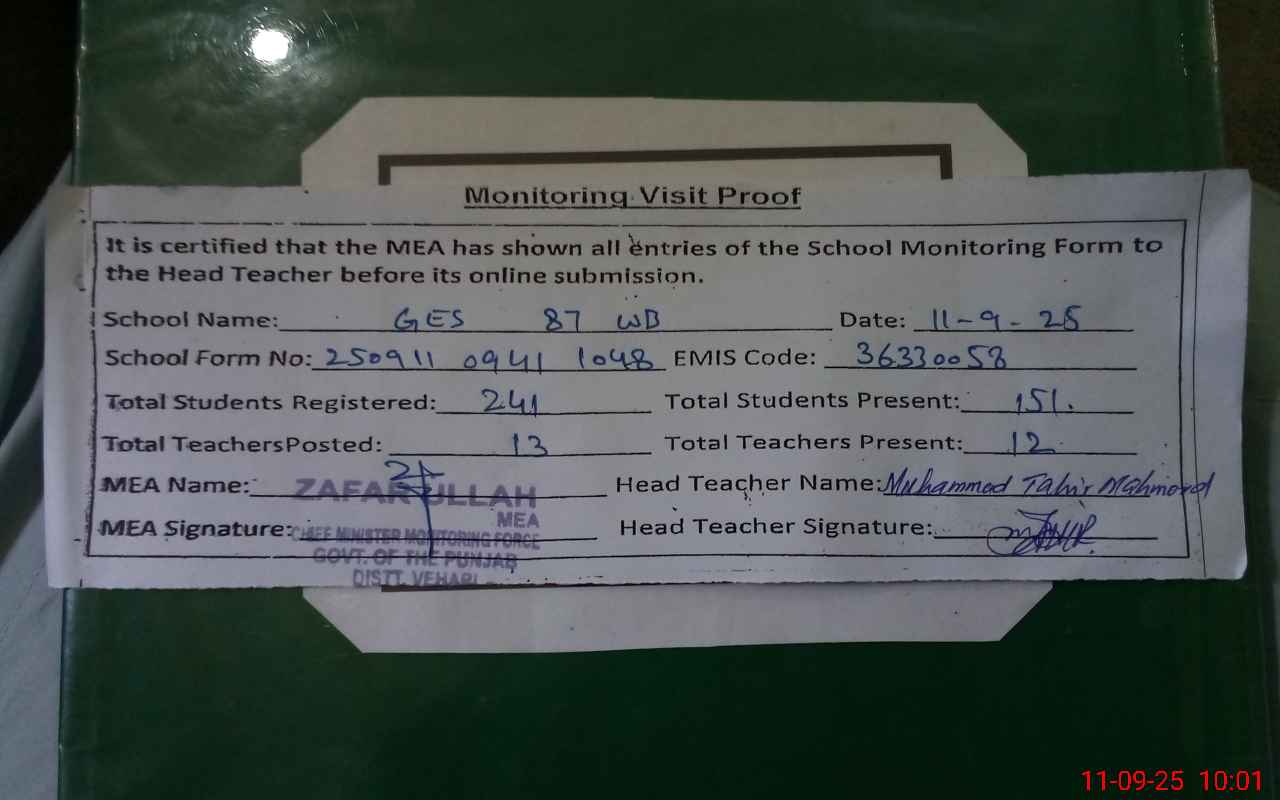 Monitoring Visit Proof
It is certified that the MEA has shown all entries of the School Monitoring Form to
the Head Teacher before its online submission.
School Name: GES 87 WB Date: 11-9-25
School Form No: 250911 0941 1048 EMIS Code: 36330058
Total Students Registered: 241 Total Students Present: 151.
Total TeachersPosted: 13 Total Teachers Present: 12
MEA Name: ZAFAR ULLAH Head Teacher Name: Muhammad Tahir Mahmood
MEA
MEA Signature: CHIEF MINISTER MONITORING FORCE Head Teacher Signature:
GOVT. OF THE PUNJAB
DISTT. VEHARI
11-09-25 10:01